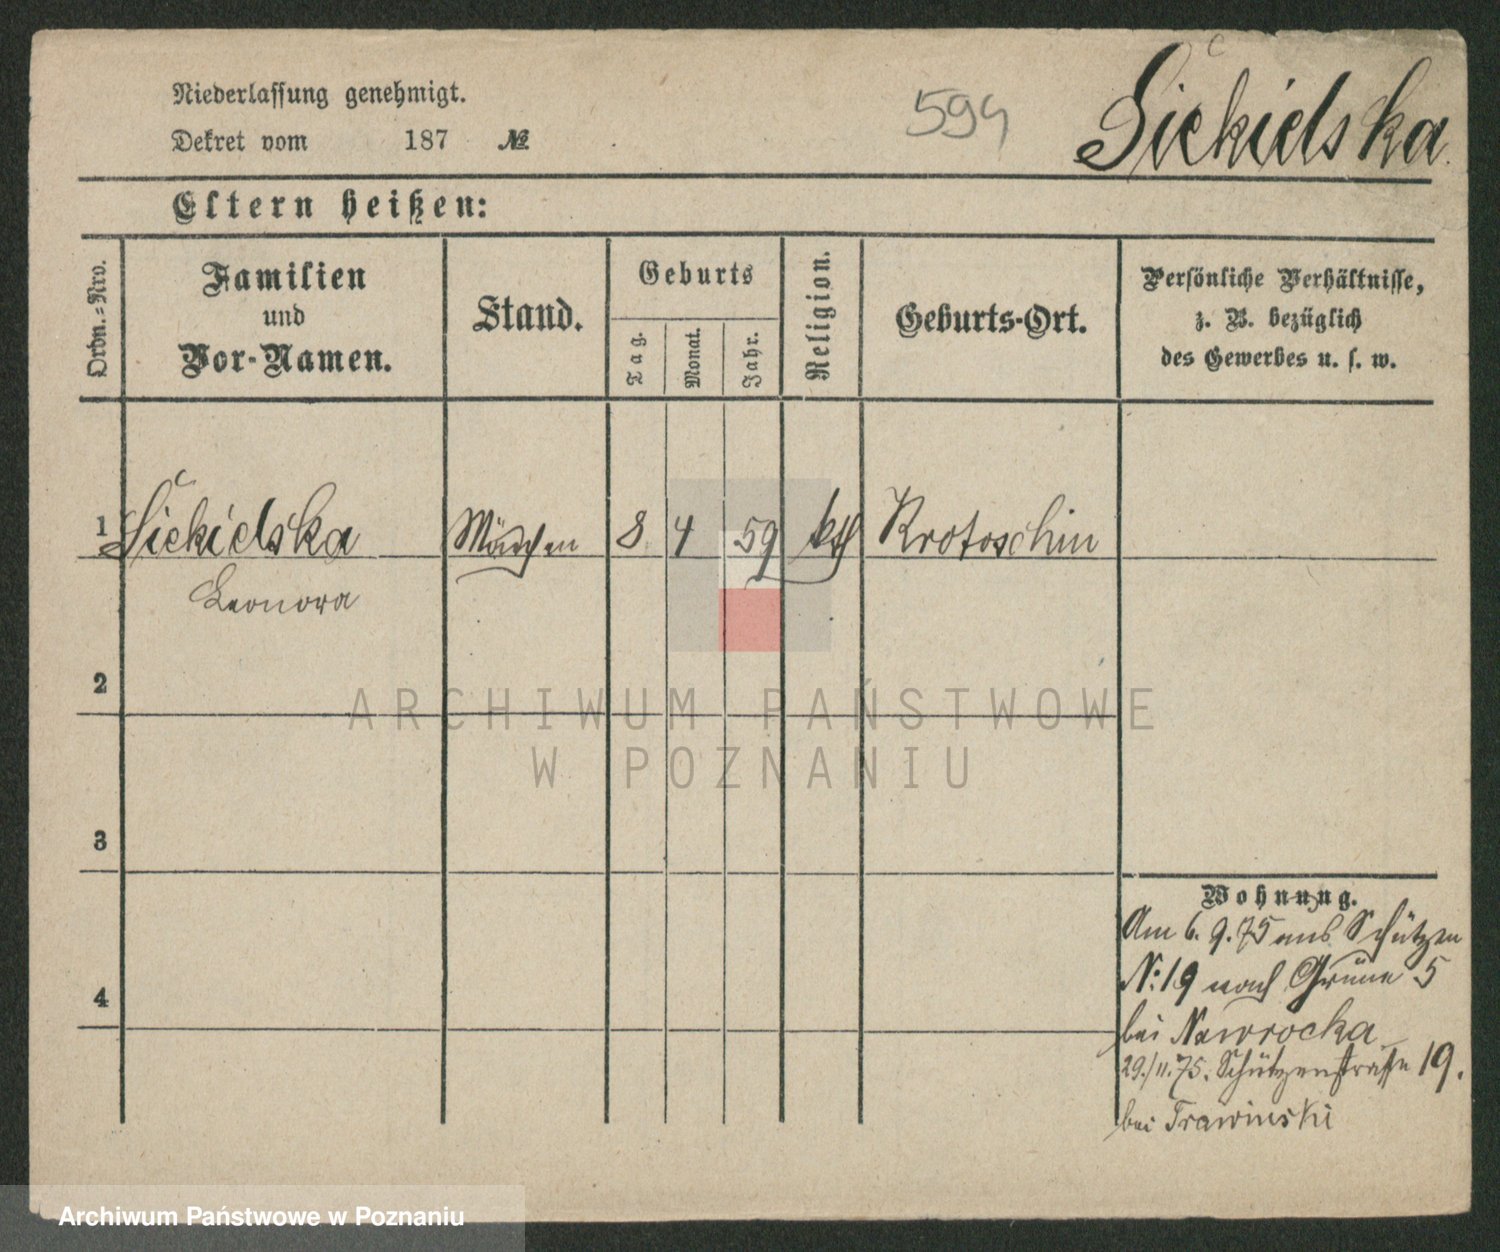 Niederlassung genehmigt.
594
Siekielska
Dekret vom 187 №
Eltern heißen:
Ordn.-Nro.
Familien
und
Vor-Namen.
Stand.
Geburts
Tag.
Monat.
Jahr.
Religion.
Geburts-Ort.
Persönliche Verhältnisse,
z. B. bezüglich
des Gewerbes u. s. w.
1 Siekielska Mädchen 8 4 59 kth Krotoschin
Leonora
2
ARCHIWUM PAŃSTWOWE
W POZNANIU
3
Wohnung.
Am 6.9.75 aus Schützen
№ 19 nach Grüne 5
4
bei Nawrocka
29./11.75. Schützenstraße 19.
bei Trawinski
Archiwum Państwowe w Poznaniu